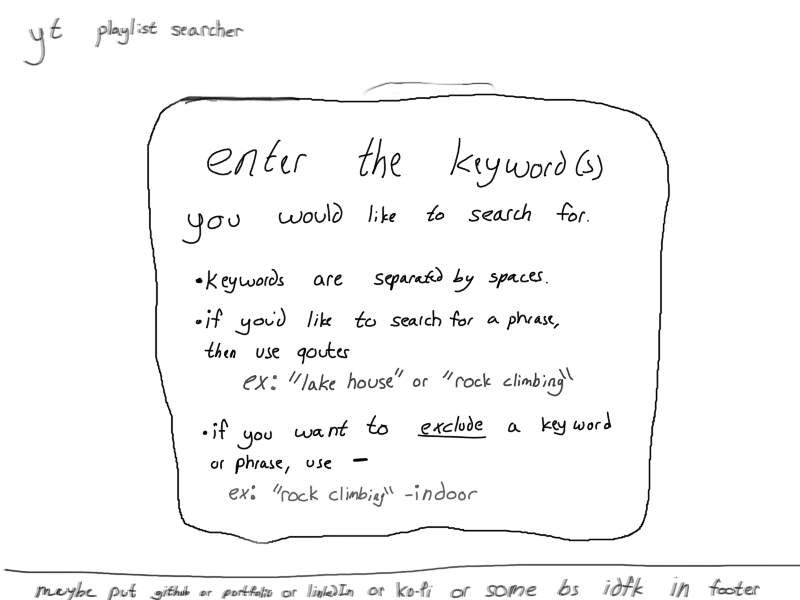 yt playlist searcher
enter the keyword(s)
you would like to search for.
•keywords are separated by spaces.
•if you'd like to search for a phrase,
then use qoutes
ex: "lake house" or "rock climbing"
•if you want to exclude a keyword
or phrase, use -
ex: "rock climbing" -indoor
maybe put github or portfolio or linkedIn or ko-fi or some bs idfk in footer